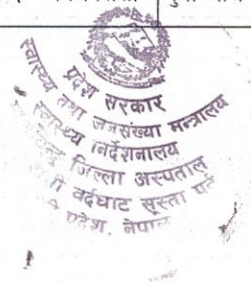 प्रदेश सरकार
स्वास्थ्य तथा जनसंख्या मन्त्रालय
स्वास्थ्य निर्देशनालय
जिल्ला अस्पताल
बर्दघाट सुस्ता
प्रदेश, नेपाल